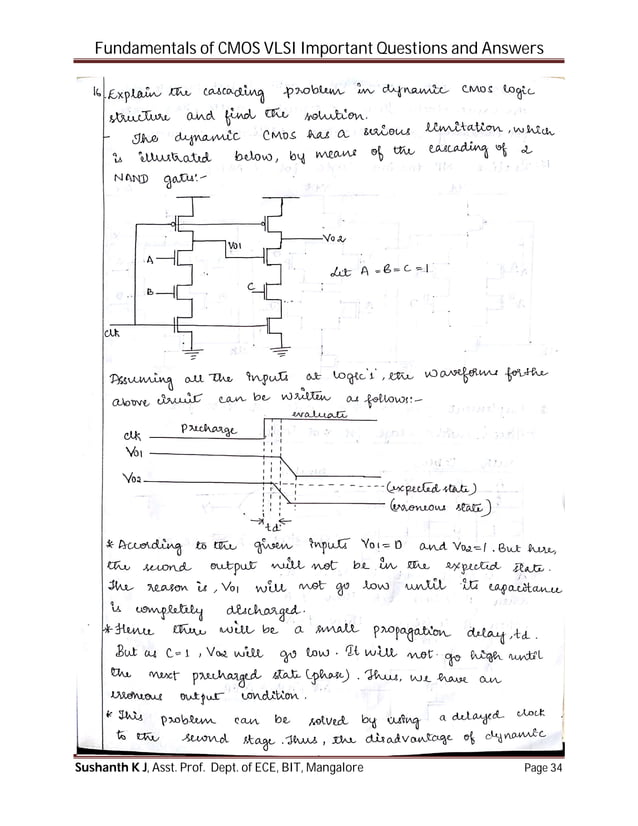 Fundamentals of CMOS VLSI Important Questions and Answers
16. Explain the cascading problem in dynamic CMOS logic
structure and find the solution.
- The dynamic CMOS has a serious limitation, which
is illustrated below, by means of the cascading of 2
NAND gates:-
V01
V02
A
Let A = B = C = 1
B
C
clk
Assuming all the inputs at logic '1', the waveforms for the
above circuit can be written as follows:-
evaluate
precharge
clk
V01
V02
(expected state)
(erroneous state)
td
* According to the given inputs V01=0 and V02=1. But here,
the second output will not be in the expected state.
The reason is, V01 will not go low until its capacitance
is completely discharged.
* Hence there will be a small propagation delay, td.
But as C=1, V02 will go low. It will not go high until
the next precharged state (phase). Thus, we have an
erroneous output condition.
* This problem can be solved by using a delayed clock
to the second stage. Thus, the disadvantage of dynamic
Sushanth K J, Asst. Prof. Dept. of ECE, BIT, Mangalore
Page 34